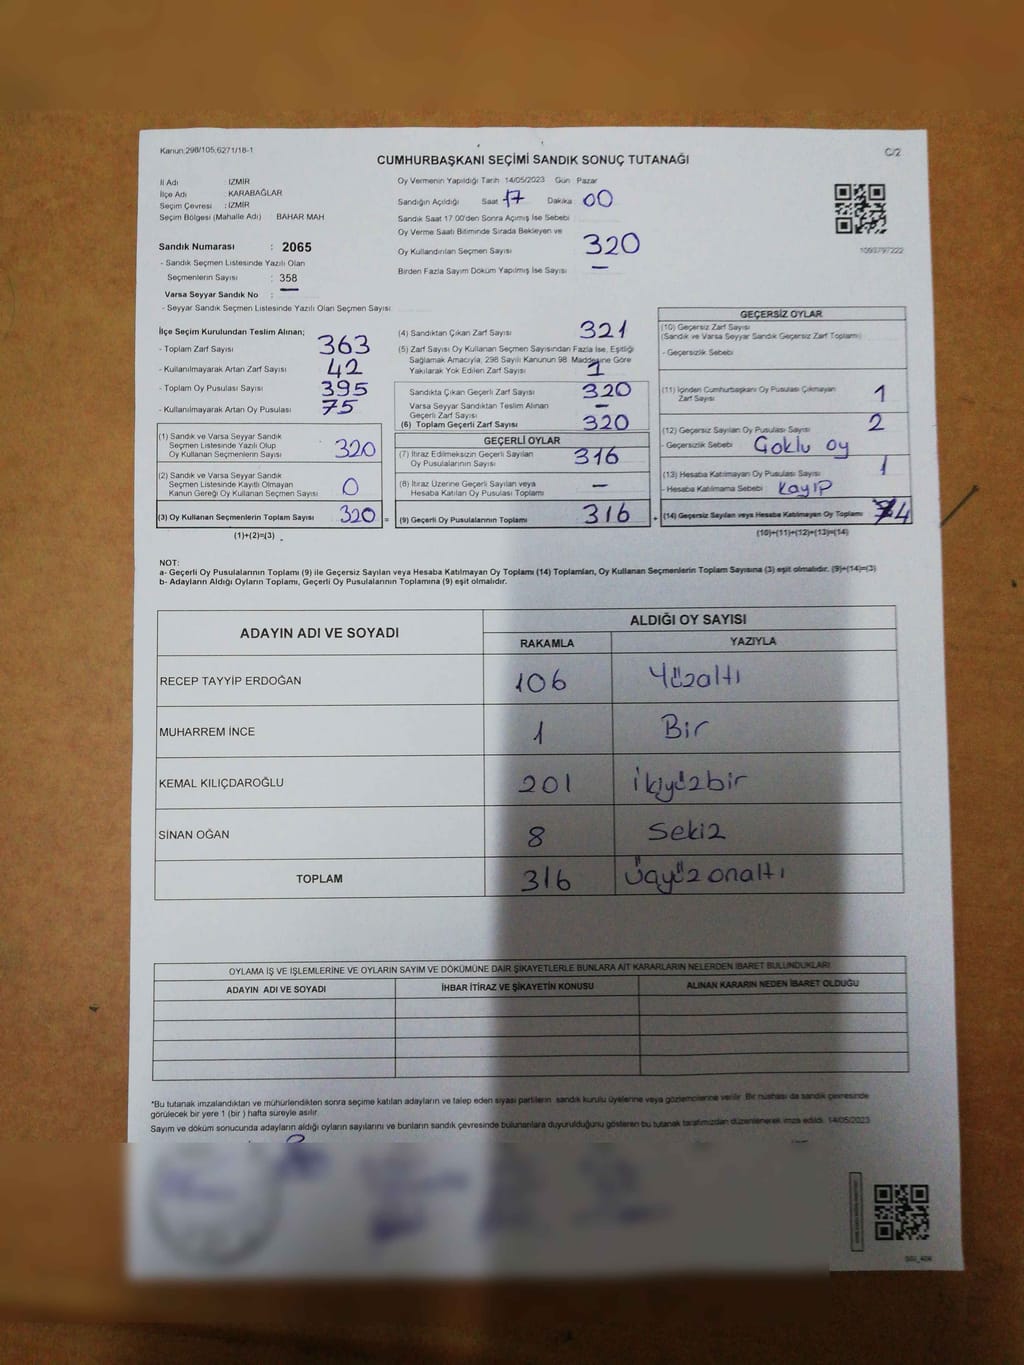 Kanun:298/105,6271/18-1
C/2
CUMHURBAŞKANI SEÇİMİ SANDIK SONUÇ TUTANAĞI
İl Adı : İZMİR
İlçe Adı : KARABAĞLAR
Seçim Çevresi : İZMİR
Seçim Bölgesi (Mahalle Adı) BAHAR MAH
Oy Vermenin Yapıldığı Tarih 14/05/2023 Gün Pazar
Sandığın Açıldığı Saat 17 Dakika 00
Sandık Saat 17.00'den Sonra Açımış İse Sebebi
Oy Verme Saati Bitiminde Sırada Bekleyen ve
Oy Kullandırılan Seçmen Sayısı 320
Birden Fazla Sayım Döküm Yapılmış İse Sayısı —
1093797222
Sandık Numarası : 2065
- Sandık Seçmen Listesinde Yazılı Olan
Seçmenlerin Sayısı : 358
Varsa Seyyar Sandık No : —
- Seyyar Sandık Seçmen Listesinde Yazılı Olan Seçmen Sayısı
İlçe Seçim Kurulundan Teslim Alınan;
- Toplam Zarf Sayısı 363
- Kullanılmayarak Artan Zarf Sayısı 42
- Toplam Oy Pusulası Sayısı 395
- Kullanılmayarak Artan Oy Pusulası 75
(1) Sandık ve Varsa Seyyar Sandık
Seçmen Listesinde Yazılı Olup
Oy Kullanan Seçmenlerin Sayısı 320
(2) Sandık ve Varsa Seyyar Sandık
Seçmen Listesinde Kayıtlı Olmayan
Kanun Gereği Oy Kullanan Seçmen Sayısı 0
(3) Oy Kullanan Seçmenlerin Toplam Sayısı 320 =
(1)+(2)=(3)
(4) Sandıktan Çıkan Zarf Sayısı 321
(5) Zarf Sayısı Oy Kullanan Seçmen Sayısından Fazla İse, Eşitliği
Sağlamak Amacıyla, 298 Sayılı Kanunun 98. Maddesine Göre
Yakılarak Yok Edilen Zarf Sayısı 1
Sandıkta Çıkan Geçerli Zarf Sayısı 320
Varsa Seyyar Sandıktan Teslim Alınan
Geçerli Zarf Sayısı —
(6) Toplam Geçerli Zarf Sayısı 320
GEÇERLİ OYLAR
(7) İtiraz Edilmeksizin Geçerli Sayılan
Oy Pusulalarının Sayısı 316
(8) İtiraz Üzerine Geçerli Sayılan veya
Hesaba Katılan Oy Pusulası Toplamı —
(9) Geçerli Oy Pusulalarının Toplamı 316 +
GEÇERSİZ OYLAR
(10) Geçersiz Zarf Sayısı
(Sandık ve Varsa Seyyar Sandık Geçersiz Zarf Toplamı)
- Geçersizlik Sebebi
(11) İçinden Cumhurbaşkanı Oy Pusulası Çıkmayan
Zarf Sayısı 1
(12) Geçersiz Sayılan Oy Pusulası Sayısı 2
- Geçersizlik Sebebi Çoklu oy
(13) Hesaba Katılmayan Oy Pusulası Sayısı 1
- Hesaba Katılmama Sebebi Kayıp
(14) Geçersiz Sayılan veya Hesaba Katılmayan Oy Toplamı 4
(10)+(11)+(12)+(13)=(14)
NOT:
a- Geçerli Oy Pusulalarının Toplamı (9) ile Geçersiz Sayılan veya Hesaba Katılmayan Oy Toplamı (14) Toplamları, Oy Kullanan Seçmenlerin Toplam Sayısına (3) eşit olmalıdır. (9)+(14)=(3)
b- Adayların Aldığı Oyların Toplamı, Geçerli Oy Pusulalarının Toplamına (9) eşit olmalıdır.
ADAYIN ADI VE SOYADI
ALDIĞI OY SAYISI
RAKAMLA YAZIYLA
RECEP TAYYİP ERDOĞAN 106 Yüzaltı
MUHARREM İNCE 1 Bir
KEMAL KILIÇDAROĞLU 201 İkiyüzbir
SİNAN OĞAN 8 Sekiz
TOPLAM 316 Üçyüzonaltı
OYLAMA İŞ VE İŞLEMLERİNE VE OYLARIN SAYIM VE DÖKÜMÜNE DAİR ŞİKAYETLERLE BUNLARA AİT KARARLARIN NELERDEN İBARET BULUNDUKLARI
ADAYIN ADI VE SOYADI İHBAR İTİRAZ VE ŞİKAYETİN KONUSU ALINAN KARARIN NEDEN İBARET OLDUĞU
*Bu tutanak imzalandıktan ve mühürlendikten sonra seçime katılan adayların ve talep eden siyasi partilerin sandık kurulu üyelerine veya gözlemcilerine verilir. Bir nüshası da sandık çevresinde
görülecek bir yere 1 (bir ) hafta süreyle asılır.
Sayım ve döküm sonucunda adayların aldığı oyların sayılarını ve bunların sandık çevresinde bulunanlara duyurulduğunu gösteren bu tutanak tarafımızdan düzenlenerek imza edildi. 14/05/2023